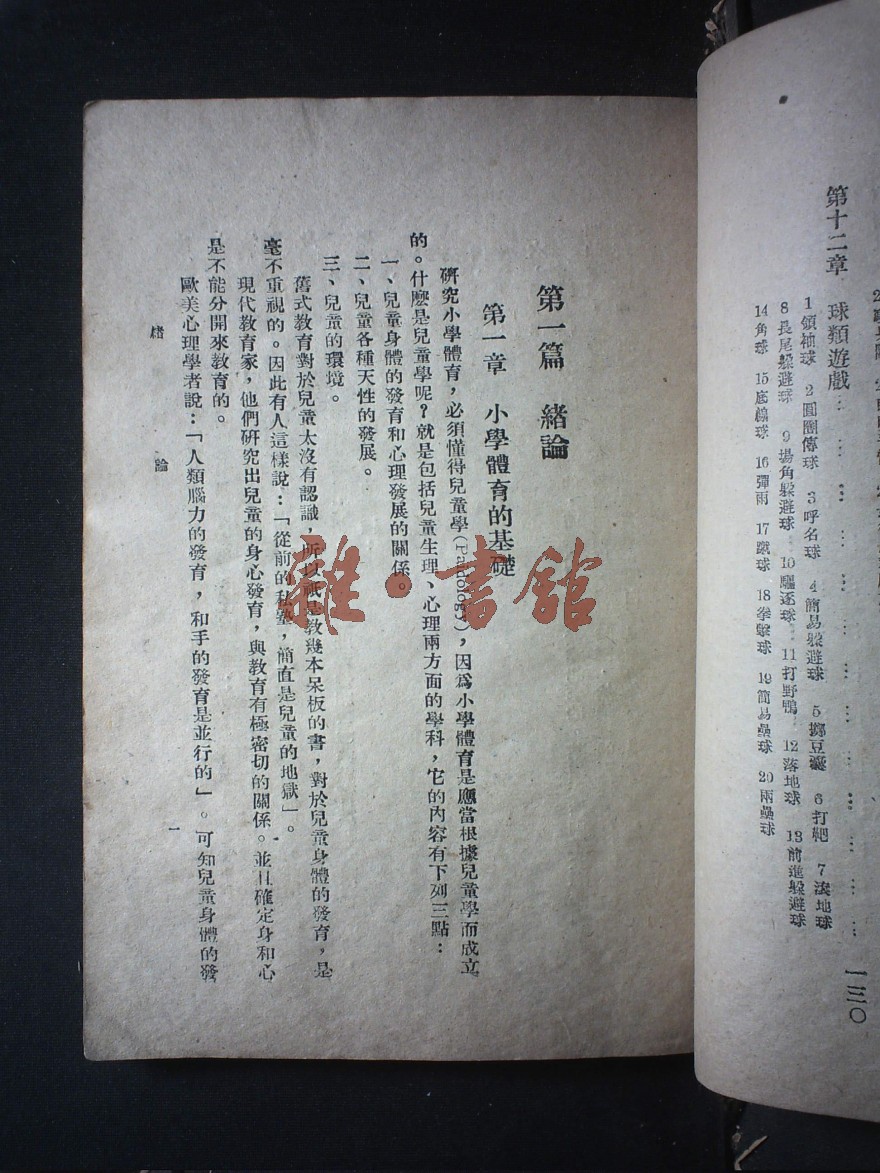 第十二章　球類遊戲…………………………一三〇
1 領袖球　2 圓圈傳球　3 呼名球　4 簡易躲避球　5 擲豆囊　6 打靶　7 滾地球
8 長尾躲避球　9 場角躲避球　10 驅逐球　11 打野鴨　12 落地球　13 前進躲避球
14 角球　15 底線球　16 彈雨　17 蹴球　18 拳擊球　19 簡易壘球　20 兩壘球
第一篇　緒論
第一章　小學體育的基礎
研究小學體育，必須懂得兒童學（Paidology），因爲小學體育是應當根據兒童學而成立
的。什麽是兒童學呢？就是包括兒童生理、心理兩方面的學科，它的內容有下列三點：
一、兒童身體的發育和心理發展的關係。
二、兒童各種天性的發展。
三、兒童的環境。
舊式教育對於兒童太沒有認識，所以祇是教幾本呆板的書，對於兒童身體的發育，是
毫不重視的。因此有人這樣說：「從前的私塾，簡直是兒童的地獄」。
現代教育家，他們研究出兒童的身心發育，與教育有極密切的關係。並且確定身和心
是不能分開來教育的。
歐美心理學者說：「人類腦力的發育，和手的發育是並行的」。可知兒童身體的發
緒　論
一
雜·書館